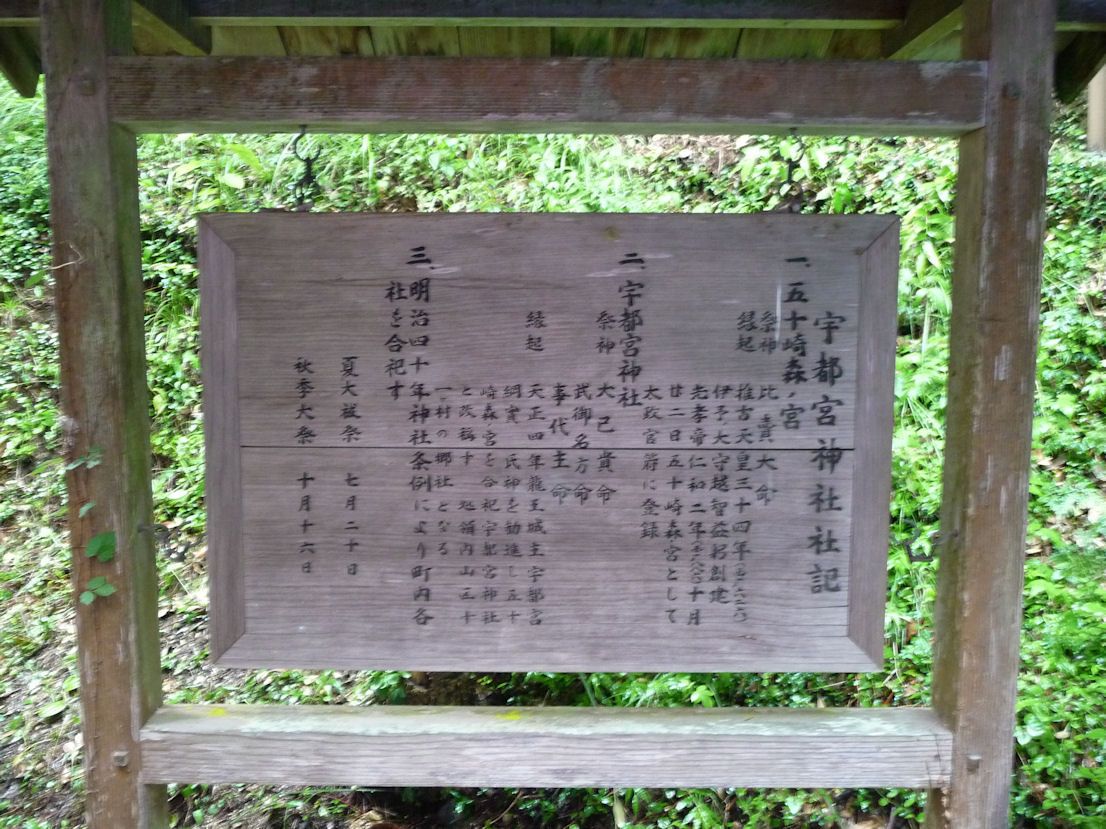 宇都宮神社社記
一、五十崎森ノ宮
祭神 比賣大命
縁起 推古天皇三十四年
伊予ノ大守越智益躬創建
光孝帝仁和二年 十月
廿二日五十崎森宮として
太政官符に登録
二、宇都宮神社
祭神 大己貴命
武御名方命
事代主命
縁起 天正四年龍王城主宇都宮
綱實 氏神を勧進し五十
崎森宮を合祀宇都宮神社
と改稱 領内山
村の郷社となる
三、明治四十年神社条例により町内各
社を合祀す
夏大祓祭 七月二十日
秋季大祭 十月十六日